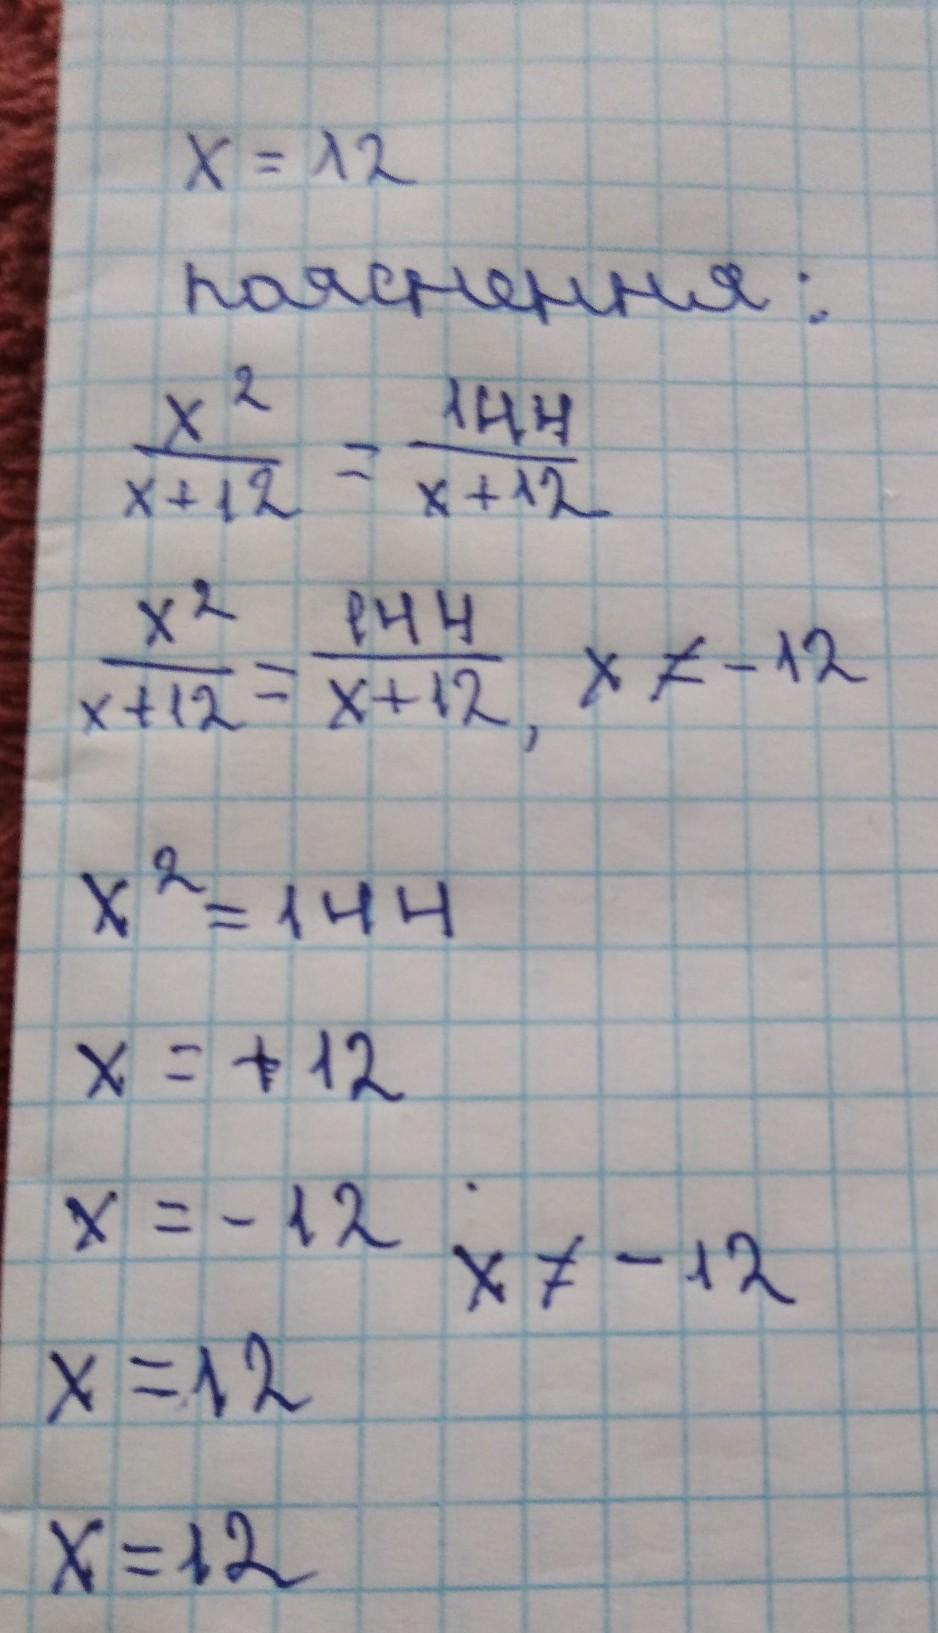 x = 12
пояснення:
x² / x+12 = 144 / x+12
x² / x+12 = 144 / x+12, x ≠ -12
x² = 144
x = +12
x = -12 x ≠ -12
x = 12
x = 12